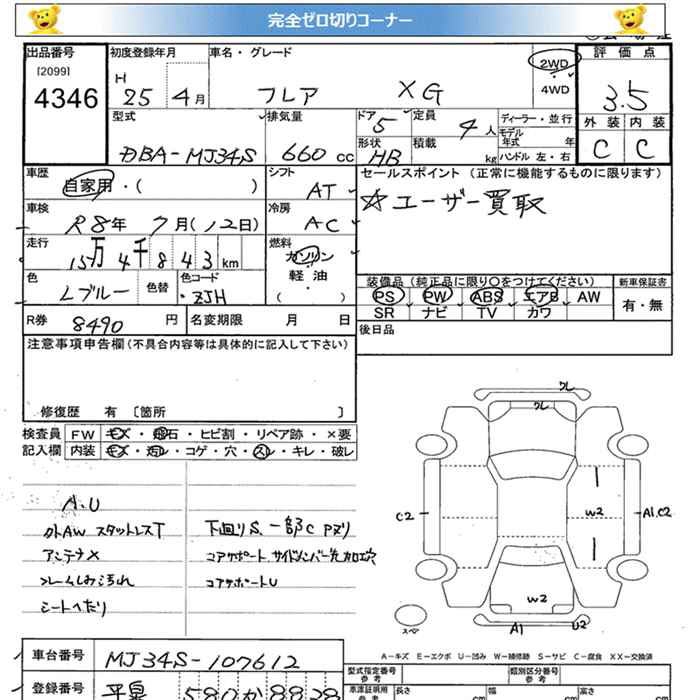 完全ゼロ切りコーナー
出品番号
[2099]
4346
初度登録年月
H 25年 4月
車名・グレード
フレア XG
2WD
4WD
評価点
3.5
外装 内装
C C
型式
DBA-MJ34S
排気量
660 cc
ドア 5
形状 HB
定員 4人
積載 kg
ディーラー・並行
モデル年式 年
ハンドル 左・右
車歴
自家用・( )
シフト
AT
セールスポイント (正常に機能するものに限ります)
☆ユーザー買取
車検
R8年 7月(12日)
冷房
AC
走行
15万4千843km
燃料
ガソリン
軽油
( ・ )
色
Lブルー
色替
色コード
ZJH
装備品 (純正品に限り○をつけてください)
PS PW ABS エアB AW
SR ナビ TV カワ
新車保証書
有・無
R券 8490円
名変期限 月 日
後日品
注意事項申告欄(不具合内容等は具体的に記入して下さい)
修復歴 有 〔箇所 〕
検査員 FW キズ・飛石・ヒビ割・リペア跡・×要
記入欄 内装 キズ・汚レ・コゲ・穴・スレ・キレ・破レ
A.U
外AW スタットレスT
アンテナX
シートヘたり
下廻りS、一部C Pヌリ
コアサポートU
クレ
クレ
C2
W2
A1.C2
W2
A1
U2
スペア
A-キズ E-エクボ U-凹み W-補修跡 S-サビ C-腐食 XX-交換済
車台番号
MJ34S-107612
型式指定番号
類別区分番号
参考
参考
登録番号
580か8828
車庫証明用
参考
長さ
幅
高さ